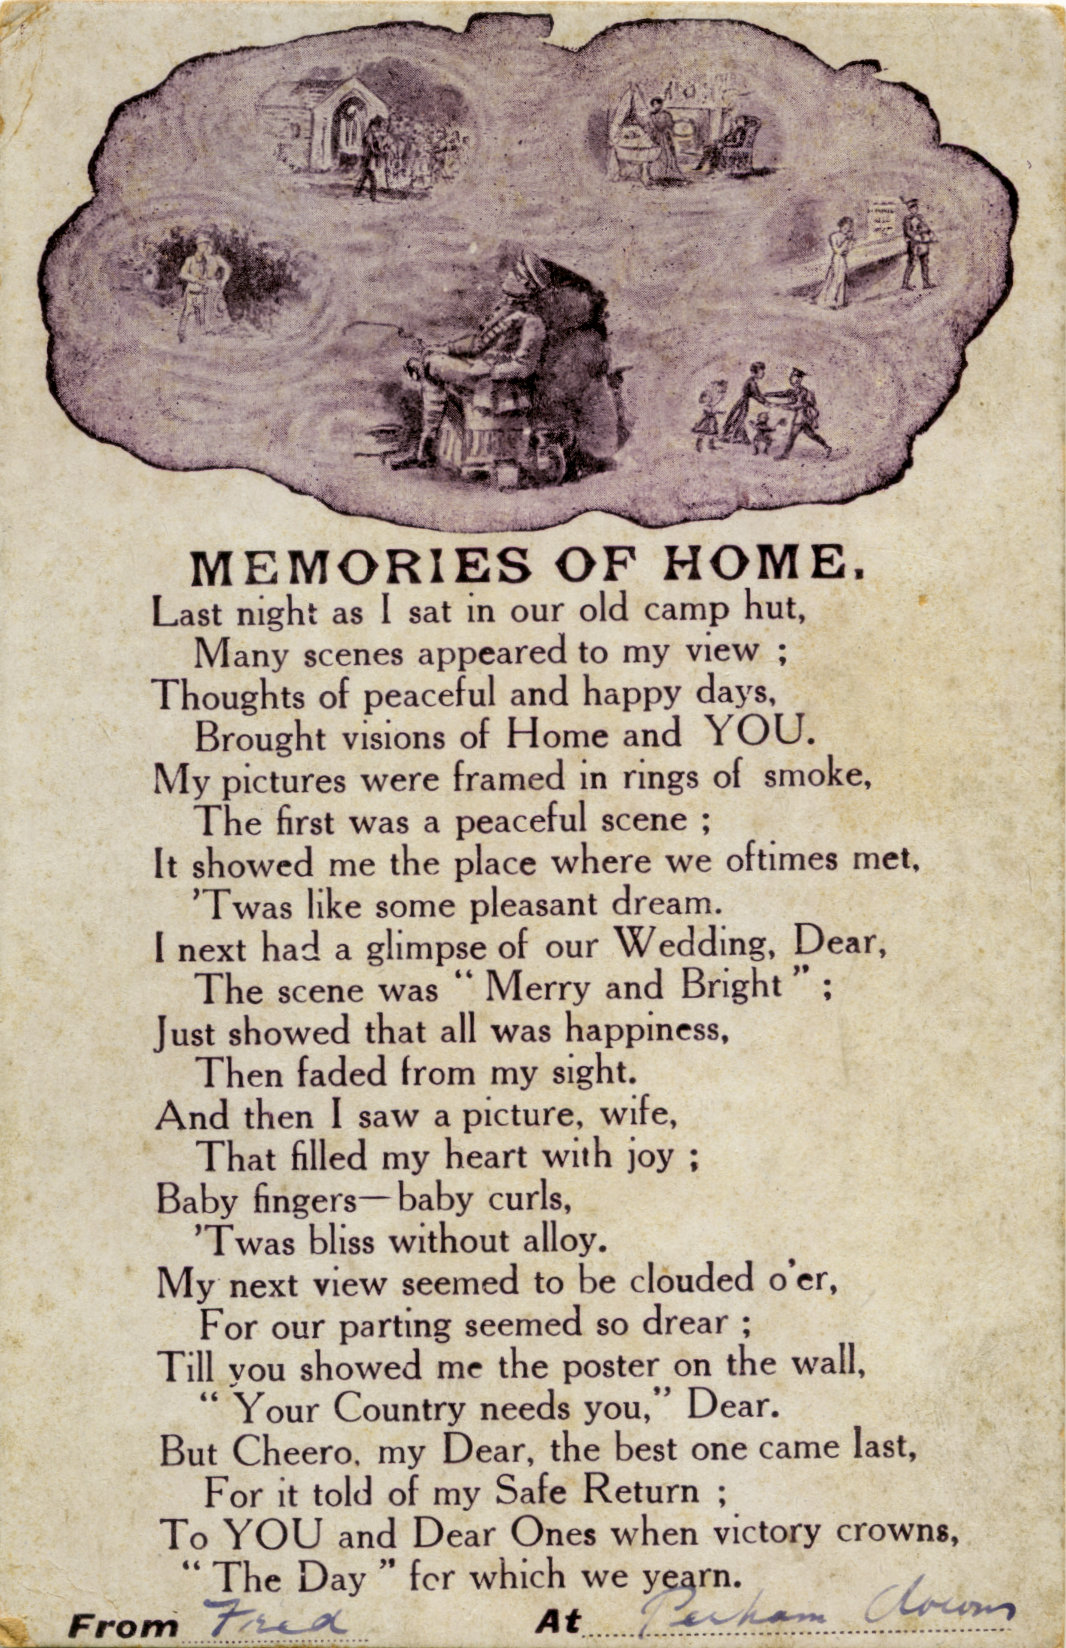 MEMORIES OF HOME.
Last night as I sat in our old camp hut,
Many scenes appeared to my view ;
Thoughts of peaceful and happy days,
Brought visions of Home and YOU.
My pictures were framed in rings of smoke,
The first was a peaceful scene ;
It showed me the place where we oftimes met,
'Twas like some pleasant dream.
I next had a glimpse of our Wedding, Dear,
The scene was “ Merry and Bright ” ;
Just showed that all was happiness,
Then faded from my sight.
And then I saw a picture, wife,
That filled my heart with joy ;
Baby fingers—baby curls,
'Twas bliss without alloy.
My next view seemed to be clouded o'er,
For our parting seemed so drear ;
Till you showed me the poster on the wall,
“ Your Country needs you,” Dear.
But Cheero, my Dear, the best one came last,
For it told of my Safe Return ;
To YOU and Dear Ones when victory crowns,
“ The Day ” for which we yearn.
From Fred At Perham Downs